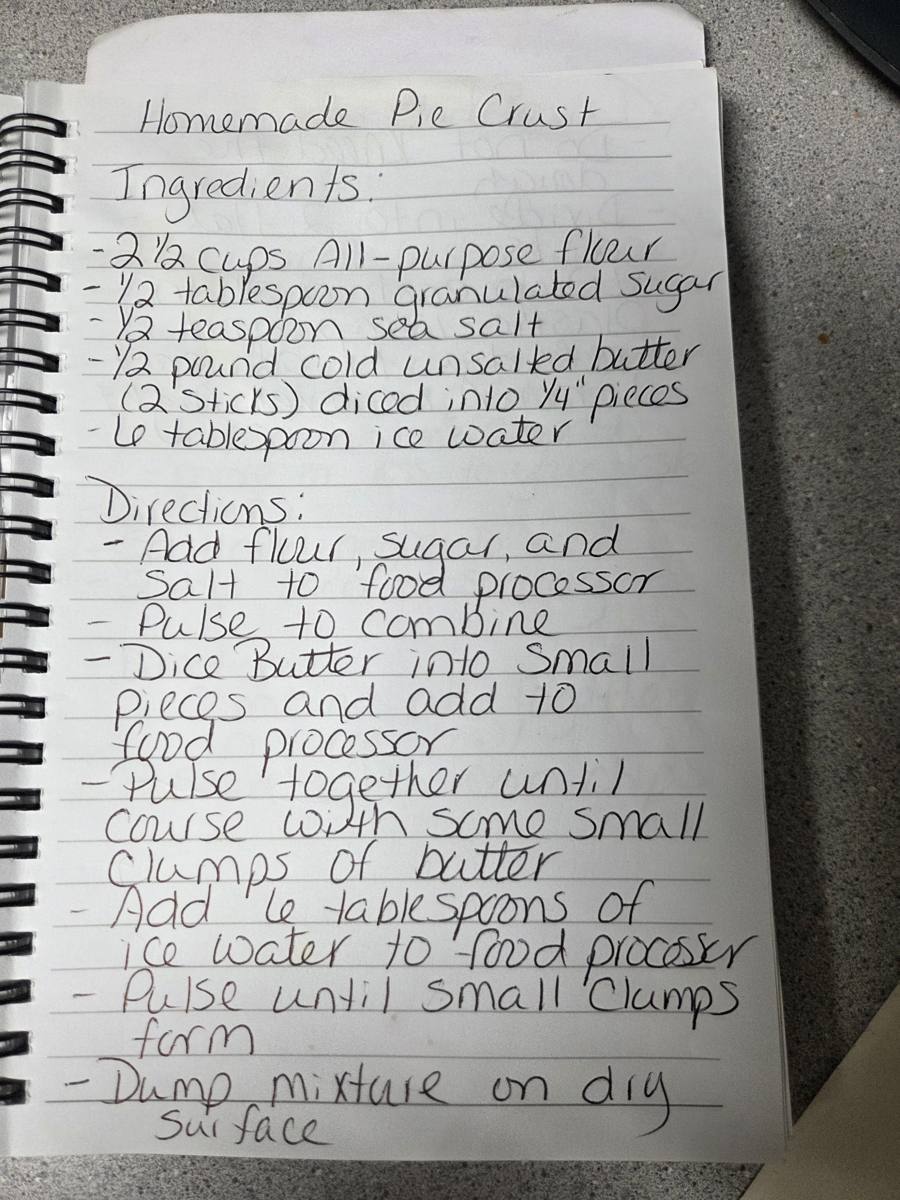 Homemade Pie Crust
Ingredients:
- 2 1/2 cups All-purpose flour
- 1/2 tablespoon granulated sugar
- 1/2 teaspoon sea salt
- 1/2 pound cold unsalted butter
(2 sticks) diced into 1/4" pieces
- 6 tablespoon ice water
Directions:
- Add flour, sugar, and
salt to food processor
- Pulse to combine
- Dice Butter into small
pieces and add to
food processor
- Pulse together until
course with some small
clumps of butter
- Add 6 tablespoons of
ice water to food processer
- Pulse until small clumps
form
- Dump mixture on dry
surface